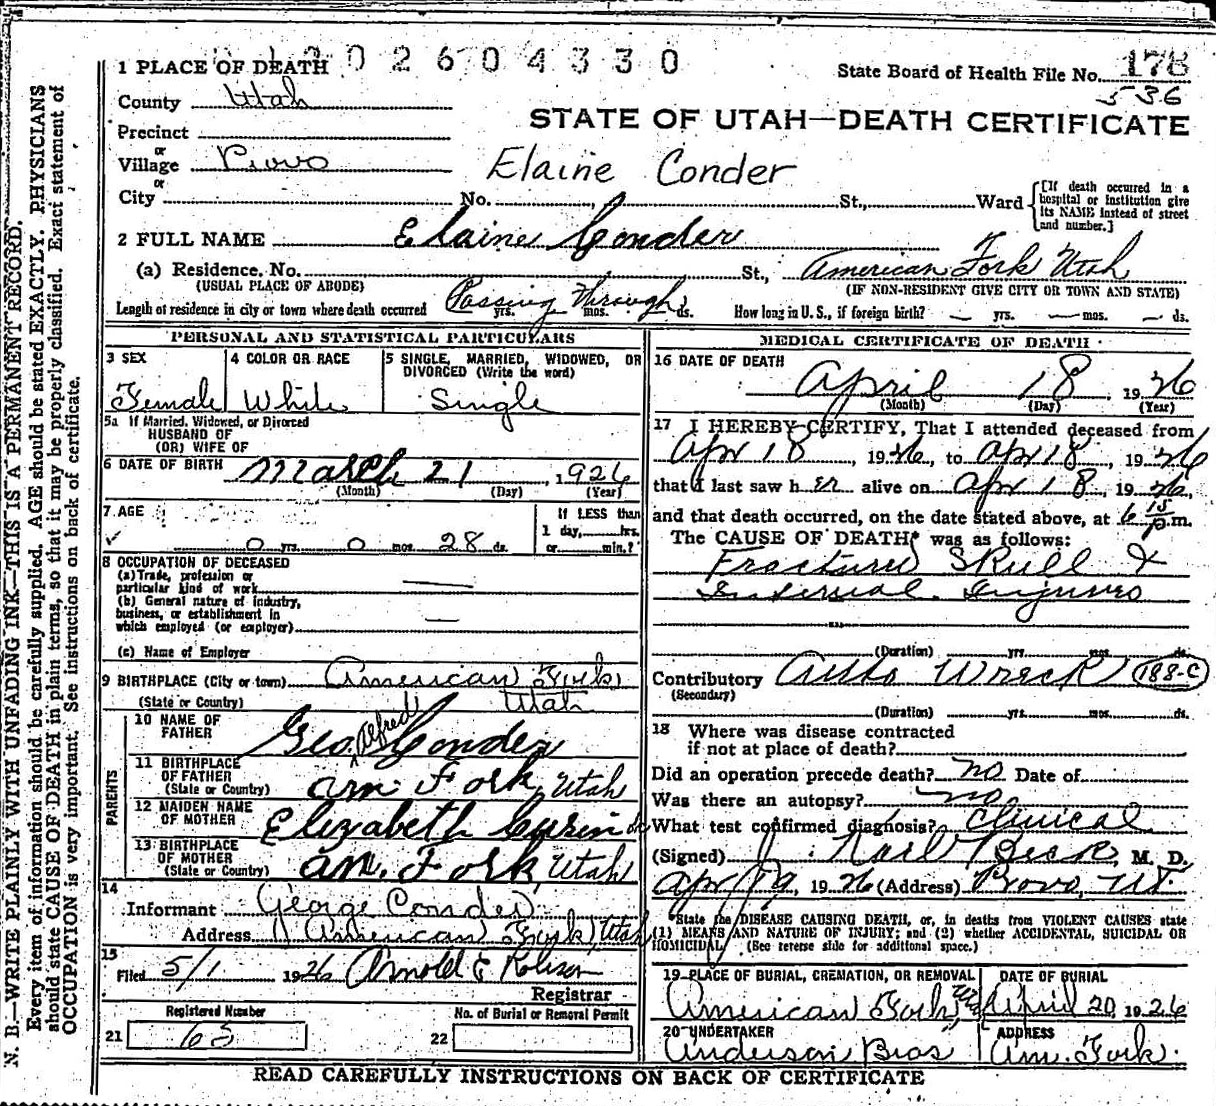 N. B.—WRITE PLAINLY WITH UNFADING INK—THIS IS A PERMANENT RECORD.
Every item of information should be carefully supplied. AGE should be stated EXACTLY. PHYSICIANS
should state CAUSE OF DEATH in plain terms, so that it may be properly classified. Exact statement of
OCCUPATION is very important. See instructions on back of certificate.
2026 04330
State Board of Health File No. 178
536
1 PLACE OF DEATH
County Utah
STATE OF UTAH—DEATH CERTIFICATE
Precinct
or
Village Provo
or
Elaine Conder
City No. St., Ward
[If death occurred in a
hospital or institution give
its NAME instead of street
and number.]
2 FULL NAME Elaine Conder
(a) Residence. No. St., American Fork Utah
(USUAL PLACE OF ABODE) (IF NON-RESIDENT GIVE CITY OR TOWN AND STATE)
Length of residence in city or town where death occurred Passing Through yrs. mos. ds. How long in U. S., if foreign birth? — yrs. — mos. — ds.
PERSONAL AND STATISTICAL PARTICULARS
3 SEX
Female
4 COLOR OR RACE
White
5 SINGLE, MARRIED, WIDOWED, OR
DIVORCED (Write the word)
Single
5a If Married, Widowed, or Divorced
HUSBAND OF
(OR) WIFE OF
6 DATE OF BIRTH March 21, 1926
(Month) (Day) (Year)
7 AGE
0 yrs. 0 mos. 28 ds.
If LESS than
1 day, hrs.
or min.?
8 OCCUPATION OF DECEASED
(a) Trade, profession or
particular kind of work —
(b) General nature of industry,
business, or establishment in
which employed (or employer) —
(c) Name of Employer
9 BIRTHPLACE (City or town) American Fork,
(State or Country) Utah
PARENTS
10 NAME OF
FATHER Geo. Alfred Conder
11 BIRTHPLACE
OF FATHER
(State or Country) Am Fork, Utah
12 MAIDEN NAME
OF MOTHER Elizabeth
13 BIRTHPLACE
OF MOTHER
(State or Country) Am. Fork, Utah
14
Informant George Conder
Address American Fork, Utah
15
Filed 5/1 1926 Arnold E
Registrar
Registered Number
21 65
No. of Burial or Removal Permit
22
MEDICAL CERTIFICATE OF DEATH
16 DATE OF DEATH
April 18 1926
(Month) (Day) (Year)
17 I HEREBY CERTIFY, That I attended deceased from
Apr 18, 1926, to Apr 18, 1926
that I last saw her alive on Apr 18, 1926,
and that death occurred, on the date stated above, at 6 15 p.m.
The CAUSE OF DEATH* was as follows:
Fractured Skull &
Internal Injuries
(Duration) yrs. mos. ds.
Contributory Auto Wreck 188-C
(Secondary)
(Duration) yrs. mos. ds.
18 Where was disease contracted
if not at place of death?
Did an operation precede death? no Date of
Was there an autopsy? no
What test confirmed diagnosis? Clinical
(Signed) J. Karl Beck, M. D.
Apr 19, 1926 (Address) Provo, Ut.
*State the DISEASE CAUSING DEATH, or, in deaths from VIOLENT CAUSES state
(1) MEANS AND NATURE OF INJURY; and (2) whether ACCIDENTAL, SUICIDAL OR
HOMICIDAL. (See reverse side for additional space.)
19 PLACE OF BURIAL, CREMATION, OR REMOVAL
American Fork,
DATE OF BURIAL
April 20, 1926
20 UNDERTAKER
Anderson Bros
ADDRESS
Am. Fork.
READ CAREFULLY INSTRUCTIONS ON BACK OF CERTIFICATE